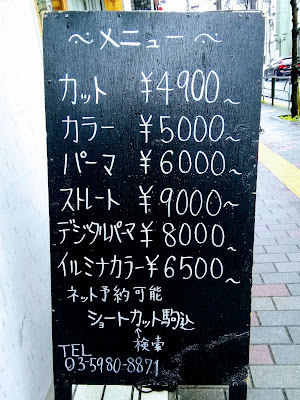 ～メニュー～
カット ￥4900～
カラー ￥5000～
パーマ ￥6000～
ストレート ￥9000～
デジタルパーマ ￥8000～
イルミナカラー ￥6500～
ネット予約可能
ショートカット駒込
↑検索
TEL
03-5980-8871